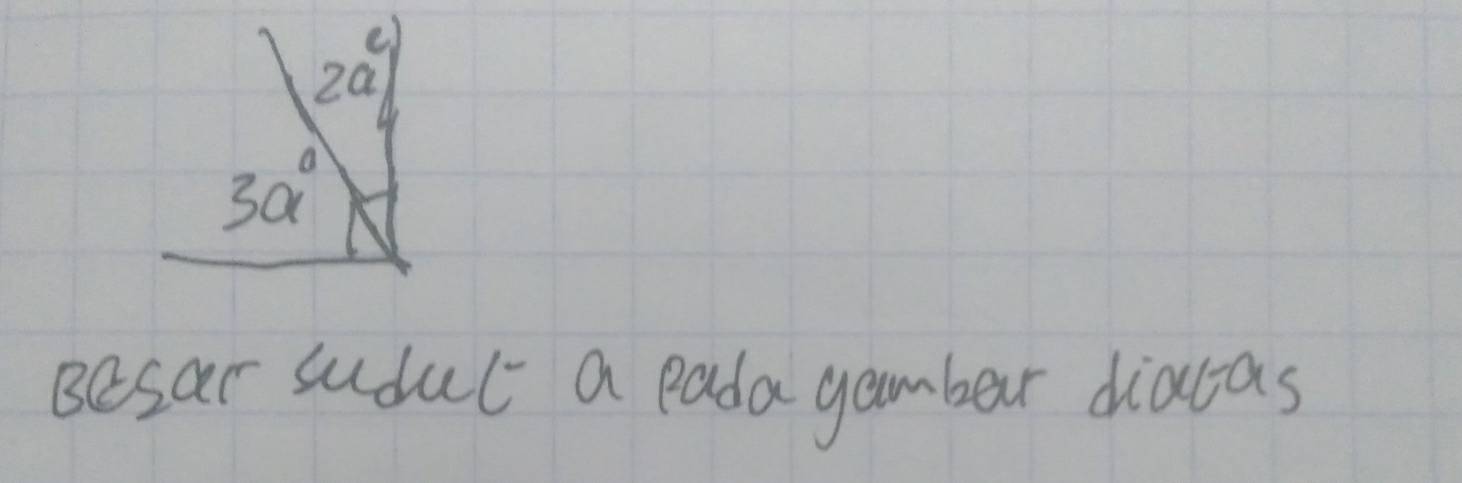 2a°
3a°
Besar sudut a pada gambar diatas